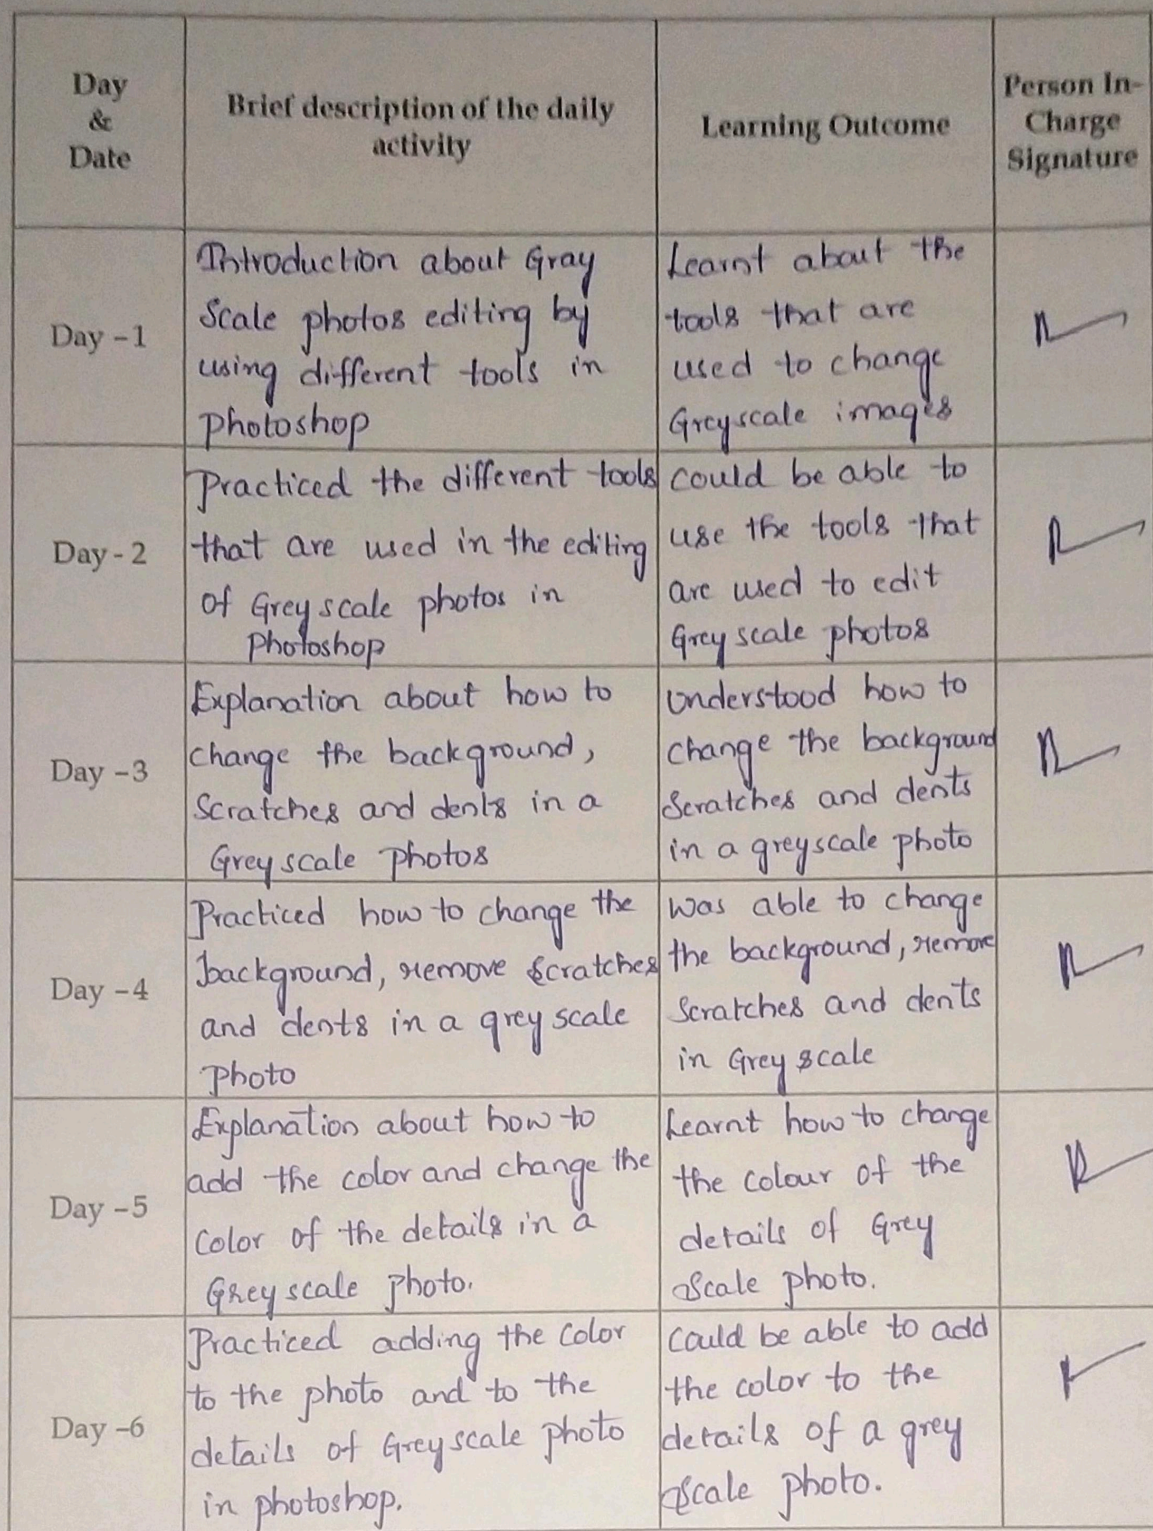 Day
&
Date
Brief description of the daily
activity
Learning Outcome
Person In-
Charge
Signature
Day -1
Introduction about Gray
Scale photos editing by
using different tools in
photoshop
Learnt about the
tools that are
used to change
Greyscale images
Day - 2
Practiced the different tools
that are used in the editing
of Grey scale photos in
Photoshop
Could be able to
use the tools that
are used to edit
Grey scale photos
Day -3
Explanation about how to
change the background,
Scratches and dents in a
Grey scale photos
Understood how to
change the background
Scratches and dents
in a greyscale photo
Day -4
Practiced how to change the
background, remove scratches
and dents in a grey scale
photo
Was able to change
the background, remove
Scratches and dents
in Grey scale
Day -5
Explanation about how to
add the color and change the
color of the details in a
Grey scale photo.
Learnt how to change
the colour of the
details of Grey
Scale photo.
Day -6
Practiced adding the color
to the photo and to the
details of Grey scale photo
in photoshop.
Could be able to add
the color to the
details of a grey
Scale photo.